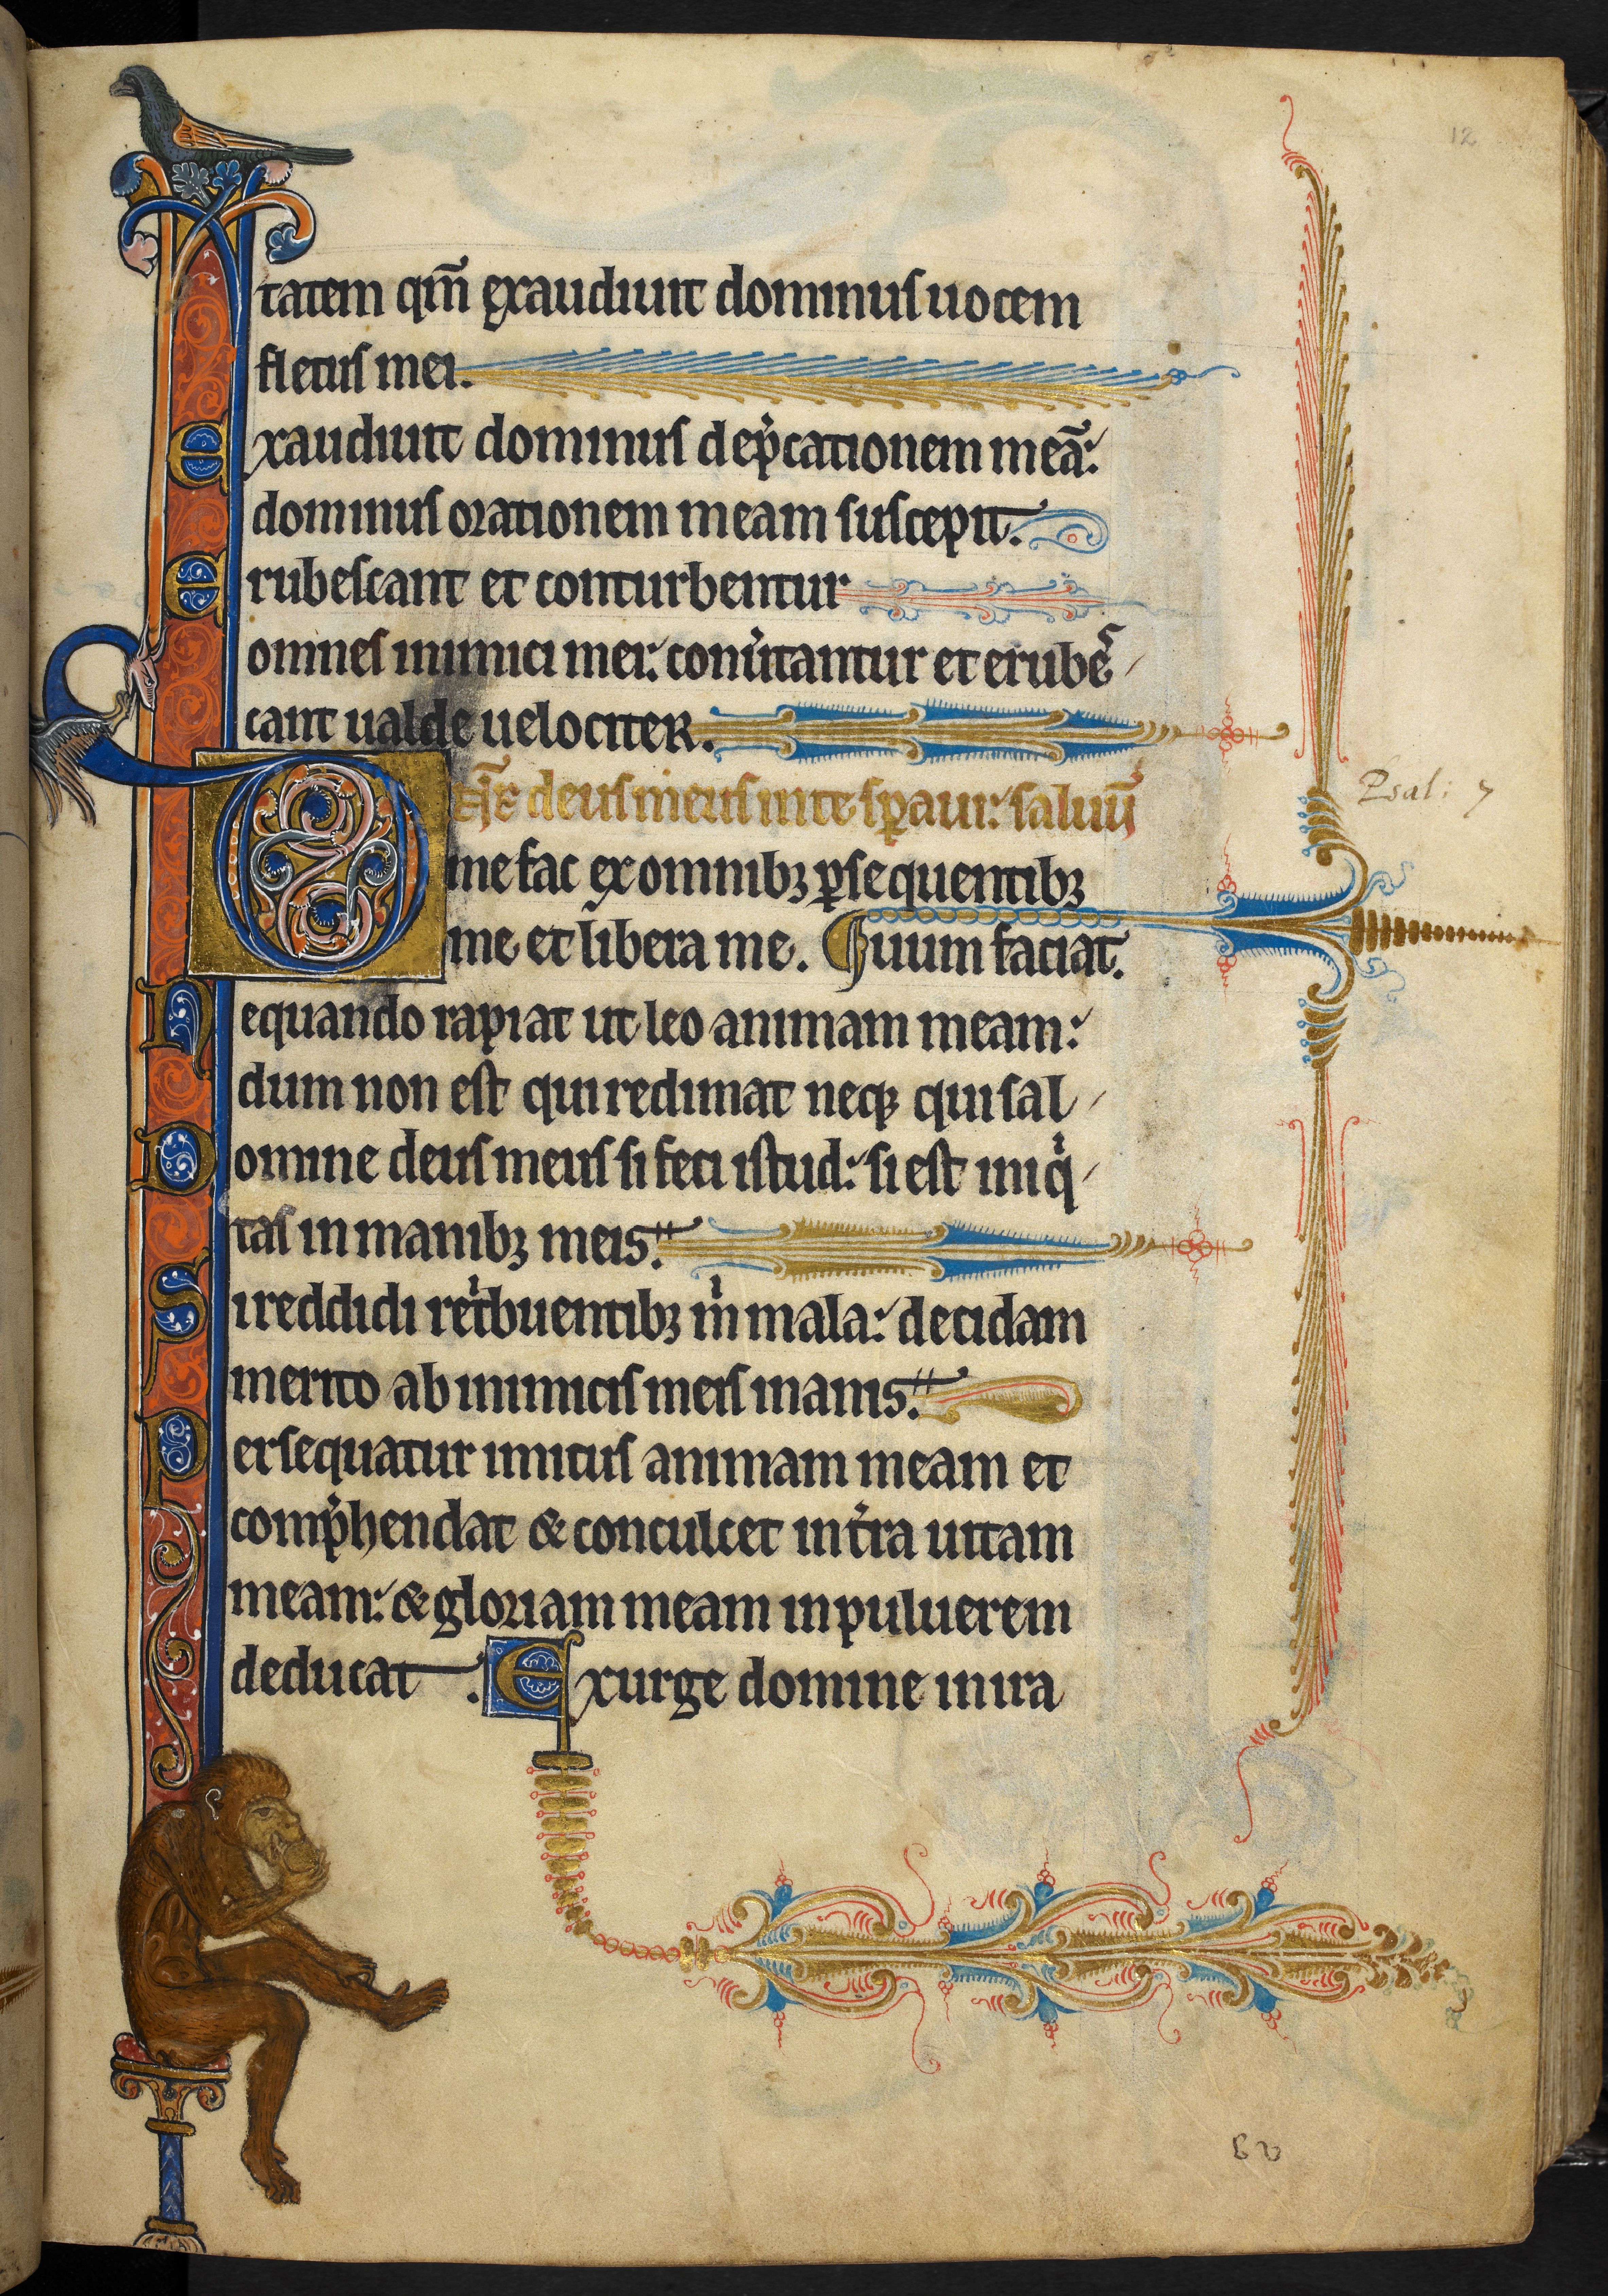 12
tatem qm̃ exaudiuit dominus uocem
fletus mei.
Exaudiuit dominus dep̍cationem meã:
dominus orationem meam suscepit.
Erubescant et conturbentur
omnes inimici mei: conu̍tantur et erube͛
cant ualde uelociter.
Psal: 7
Dñe deus meus in te sꝑaui: saluũ
me fac ex omnibꝫ ꝑsequentibꝫ
me et libera me. ¶ uum faciat.
Nequando rapiat ut leo animam meam:
dum non est qui redimat neqꝫ qui sal
Domine deus meus si feci istud: si est iniq̍
tas in manibꝫ meis.
Si reddidi ret̍buentibꝫ m̍ mala: decidam
merito ab inimicis meis inanis.
Persequatur imicus animam meam et
comp̍hendat & conculcet in t̍ra uitam
meam: & gloriam meam in puluerem
deducat. Exurge domine in ira